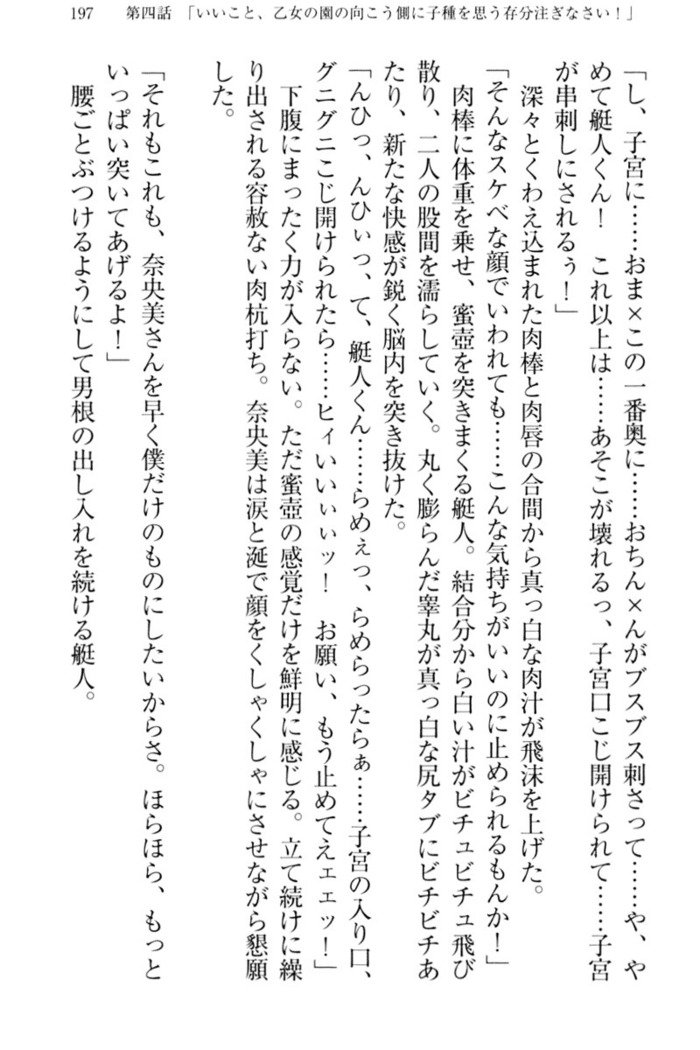 197　第四話　「いいこと、乙女の園の向こう側に子種を思う存分注ぎなさい！」
「し、子宮に……おま×この一番奥に……おちん×んがブスブス刺さって……や、や
めて艇人くん！　これ以上は……あそこが壊れるっ、子宮口こじ開けられて……子宮
が串刺しにされるぅ！」
　深々とくわえ込まれた肉棒と肉唇の合間から真っ白な肉汁が飛沫を上げた。
「そんなスケベな顔でいわれても……こんな気持ちがいいのに止められるもんか！」
　肉棒に体重を乗せ、蜜壺を突きまくる艇人。結合分から白い汁がビチュビチュ飛び
散り、二人の股間を濡らしていく。丸く膨らんだ睾丸が真っ白な尻タブにビチビチあ
たり、新たな快感が鋭く脳内を突き抜けた。
「んひっ、んひぃっ、て、艇人くん……らめぇっ、らめらったらぁ……子宮の入り口、
グニグニこじ開けられたら……ヒィいいぃぃッ！　お願い、もう止めてえェェッ！」
　下腹にまったく力が入らない。ただ蜜壺の感覚だけを鮮明に感じる。立て続けに繰
り出される容赦ない肉杭打ち。奈央美は涙と涎で顔をくしゃくしゃにさせながら懇願
した。
「それもこれも、奈央美さんを早く僕だけのものにしたいからさ。ほらほら、もっと
いっぱい突いてあげるよ！」
　腰ごとぶつけるようにして男根の出し入れを続ける艇人。